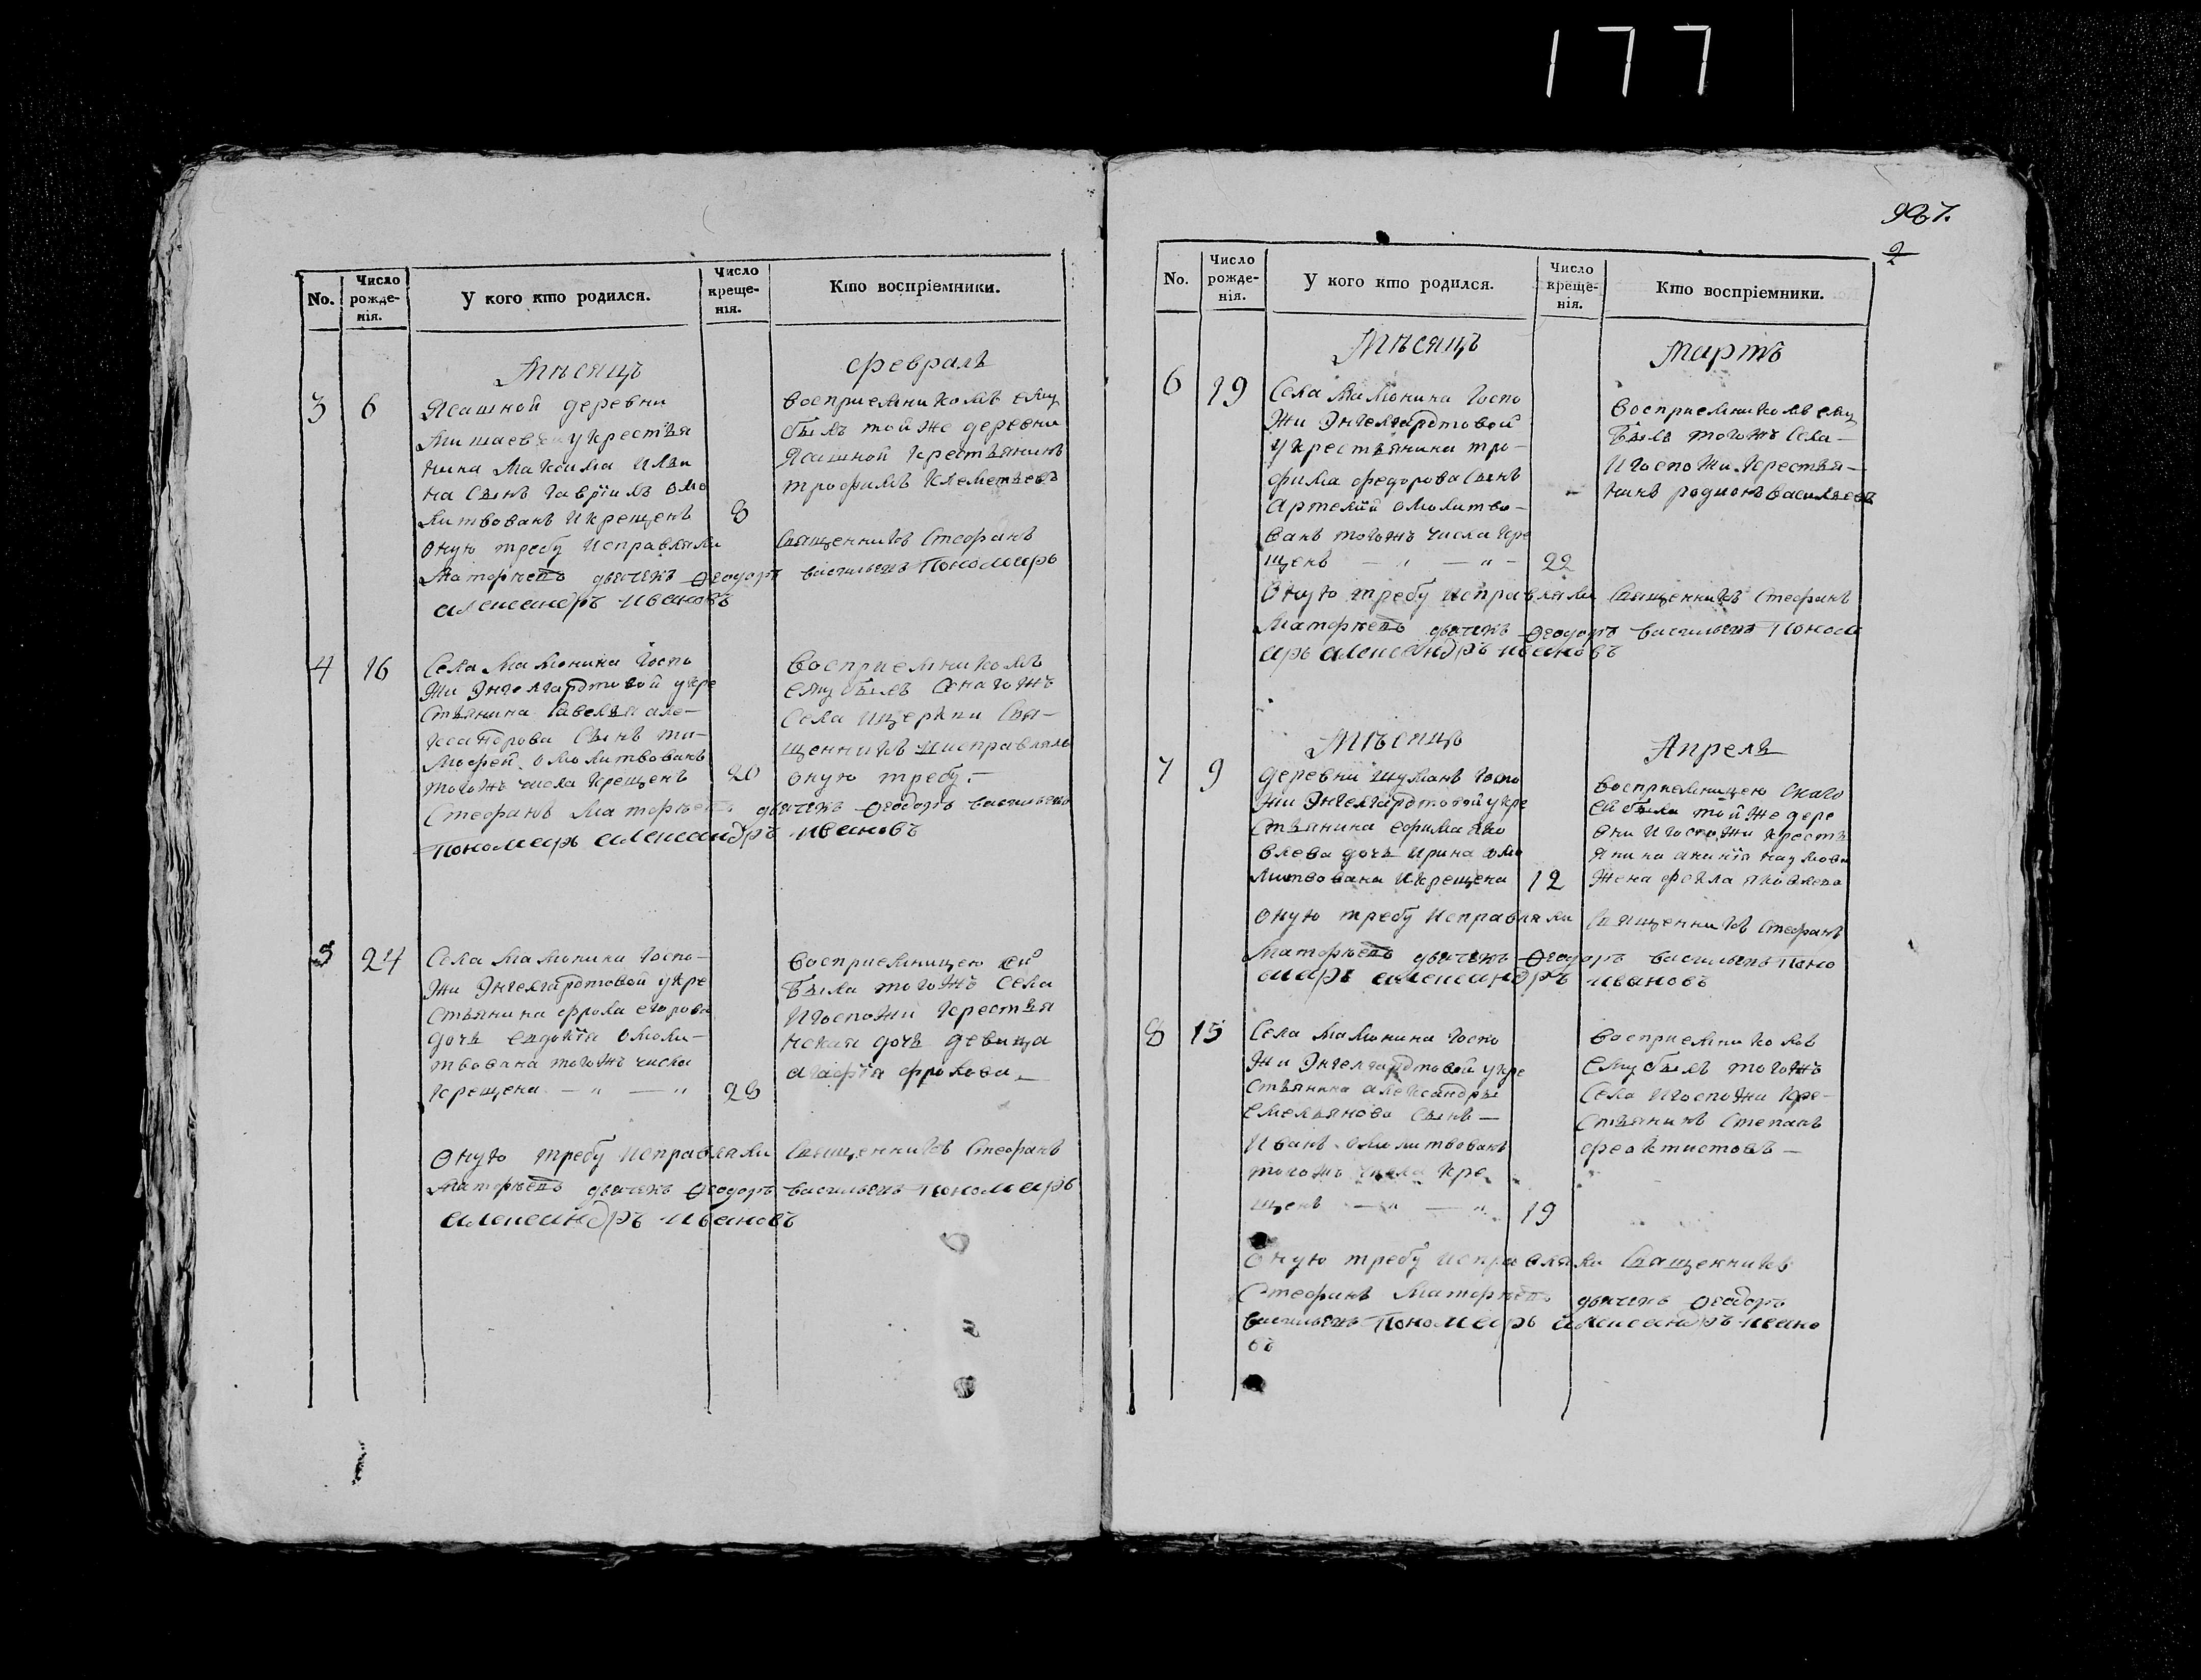 177
987.
2
No. Число рожденія. У кого кто родился. Число крещенія. Кто воспріемники.
Мѣсяцъ февраль
3 6
Ясашной деревни
Мишаевки у крестья
нина Максима Ильи
на сынъ Гаврїилъ омо
литвованъ и крещенъ 8
восприемникомъ ему
былъ той же деревни
Ясашной крестьянинъ
трофимъ Клеметьевъ
оную требу исправляли священникъ Стефанъ
дьячекъ Ѳеодоръ васильевъ пономарь
александръ ивановъ
4 16
Села Мамонина Госпо
жи Энгелгардтовой у кре
стьянина Савелья але-
ксандрова сынъ ти-
мофей омолитвованъ
тогожъ числа крещенъ 20
восприемникомъ
ему былъ онагожъ
села ищеркви свя-
щенникъ и исправляли
оную требу.-
Стефанъ дьячекъ Ѳеодоръ васильевъ
пономарь александръ ивановъ
5 24
Села Мамонина Госпо-
жи Энгелгардтовой у кре
стьянина фрола егорова
дочь евдокїя омоли-
твована тогожъ числа
крещена — „ — „ 28
восприемницею ей
была тогожъ села
и госпожи крестья
нская дочь девица
агафїя фролова.—
оную требу исправляли священникъ Стефанъ
дьячекъ Ѳеодоръ васильевъ пономарь
александръ ивановъ
No. Число рожденія. У кого кто родился. Число крещенія. Кто воспріемники.
Мѣсяцъ Мартъ
6 19
Села Мамонина Госпо
жи Энгелгардтовой
у крестьянина тро-
фима федорова сынъ
Артемїй омолитво-
ванъ тогожъ числа кре
щенъ — „ — „ - 22
восприемникомъ ему
былъ тогожъ села—
и госпожи крестья-
нинъ родионъ васильевъ
оную требу исправляли священникъ Стефанъ
дьячекъ Ѳеодоръ васильевъ поном
арь александръ ивановъ
Мѣсяцъ Апрель
7 9
деревни Шуманъ Госпо
жи Энгелгардтовой у кре
стьянина ефима яко
влева дочь ирина омо
литвована и крещена 12
восприемницею
ей была той же дере
вни и госпожи кресть
янина ананїя наумова
жена фекла яковлева
оную требу исправляли священникъ Стефанъ
дьячекъ Ѳеодоръ васильевъ поно
марь александръ ивановъ
8 15
Села Мамонина Госпо
жи Энгелгардтовой у кре
стьянина александры
емельянова сынъ—
Иванъ омолитвованъ
тогожъ числа кре
щенъ — „ — „ 19
восприемникомъ
ему былъ тогожъ
села и госпожи кре-
стьянинъ Степанъ
феоктистовъ —
оную требу исправляли священникъ
Стефанъ дьячекъ Ѳеодоръ
васильевъ пономарь александръ ивано
въ